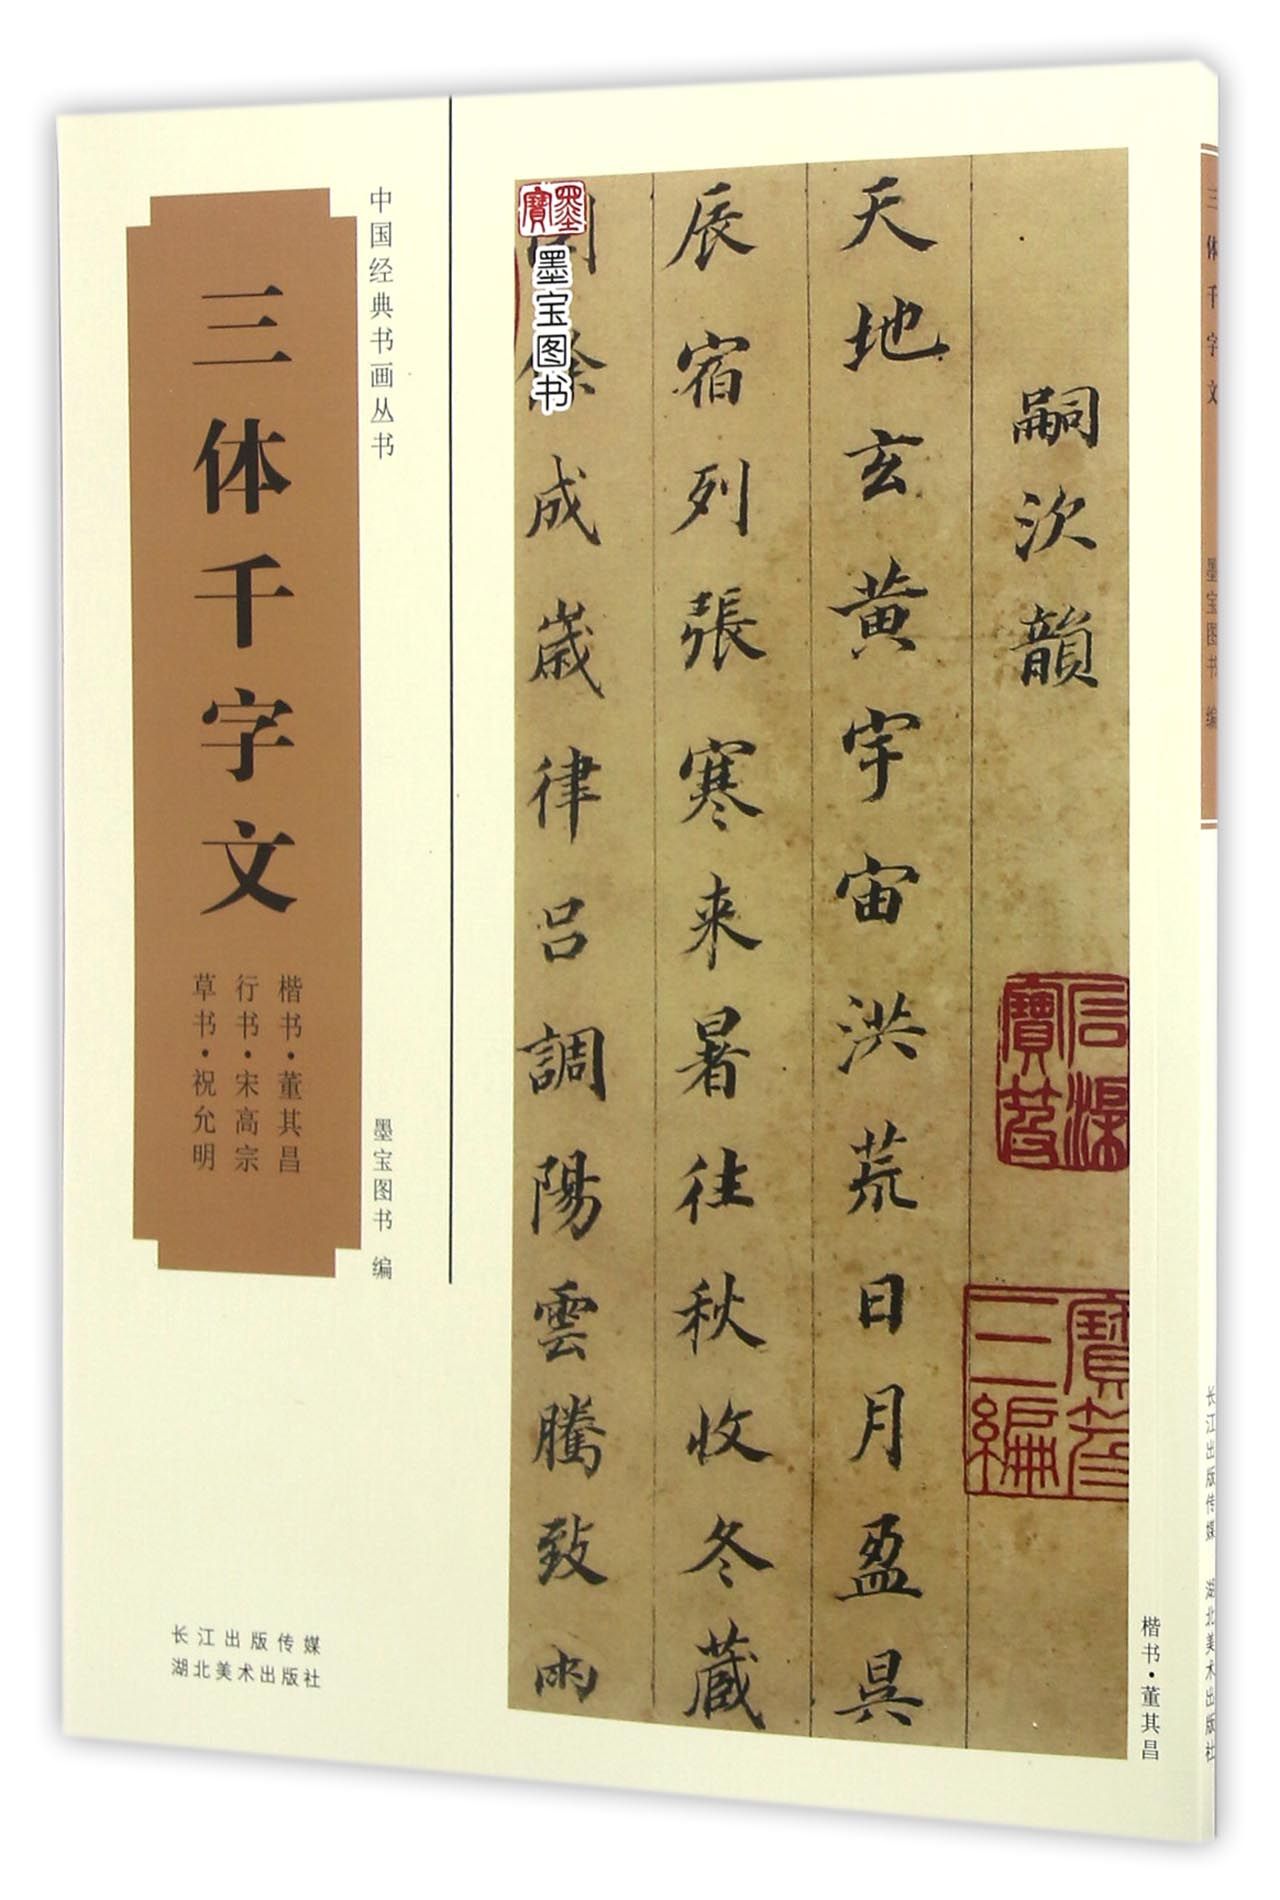 中国经典书画丛书
三体千字文
楷书·董其昌
行书·宋高宗
草书·祝允明
墨宝图书 编
长江出版传媒
湖北美术出版社
墨寶
墨宝图书
嗣次韻
天地玄黄宇宙洪荒日月盈昃
辰宿列張寒来暑往秋收冬蔵
成歲律呂調陽雲騰致雨
石渠寶笈
寶笈三編
楷书·董其昌
三体千字文
墨宝图书 编
长江出版传媒 湖北美术出版社